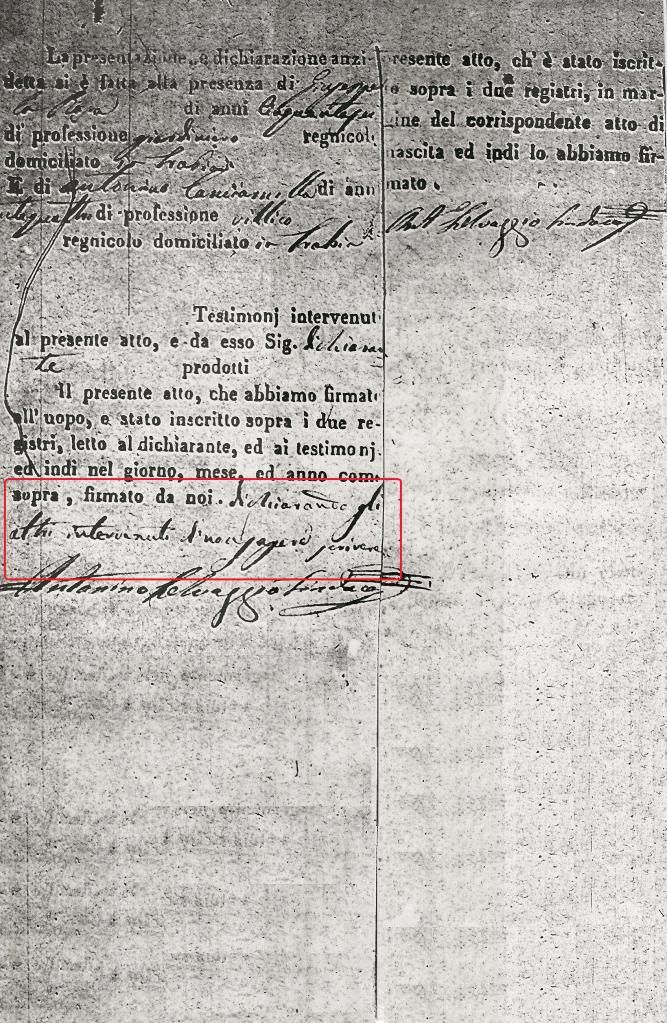 La presentazione, e dichiarazione anzi-
detta si è fatta alla presenza di Giuseppe
La Rosa di anni
di professione giardiniero regnicolo
domiciliato in Trabia
E di Antonino di anni
di professione villico
regnicolo domiciliato in Trabia
Testimonj intervenut
al presente atto, e da esso Sig. dichiaran
te prodotti
Il presente atto, che abbiamo firmato
all'uopo, e stato inscritto sopra i due re-
gistri, letto al dichiarante, ed ai testimonj,
ed indi nel giorno, mese, ed anno come
sopra, firmato da noi. dichiarando gli
altri intervenuti di non sapere scrivere
Antonino Selvaggio Sindaco
presente atto, ch' è stato iscrit-
o sopra i due registri, in mar-
gine del corrispondente atto di
nascita ed indi lo abbiamo fir-
mato.
Ant Selvaggio Sindaco